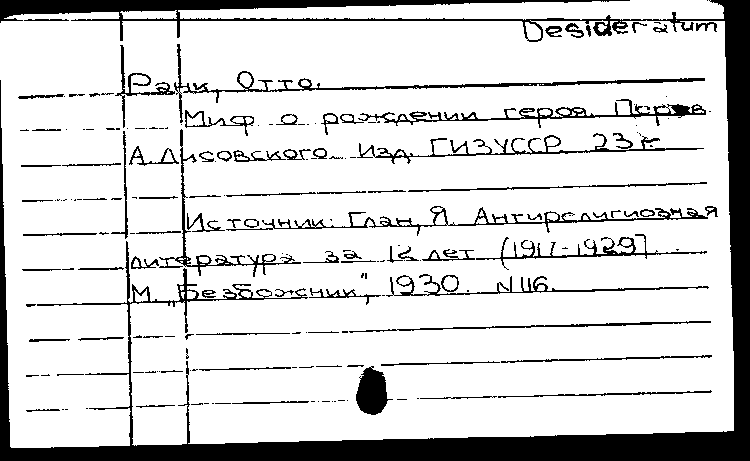 Desideratum
Ранк, Отто.
Миф о рождении героя. Перев
А. Лисовского. Изд. ГИЗУССР. 23
Источник: Глан, Я. Антирелигиозная
литература за 12 лет (1917-1929].
М. "Безбожник", 1930. N 116.